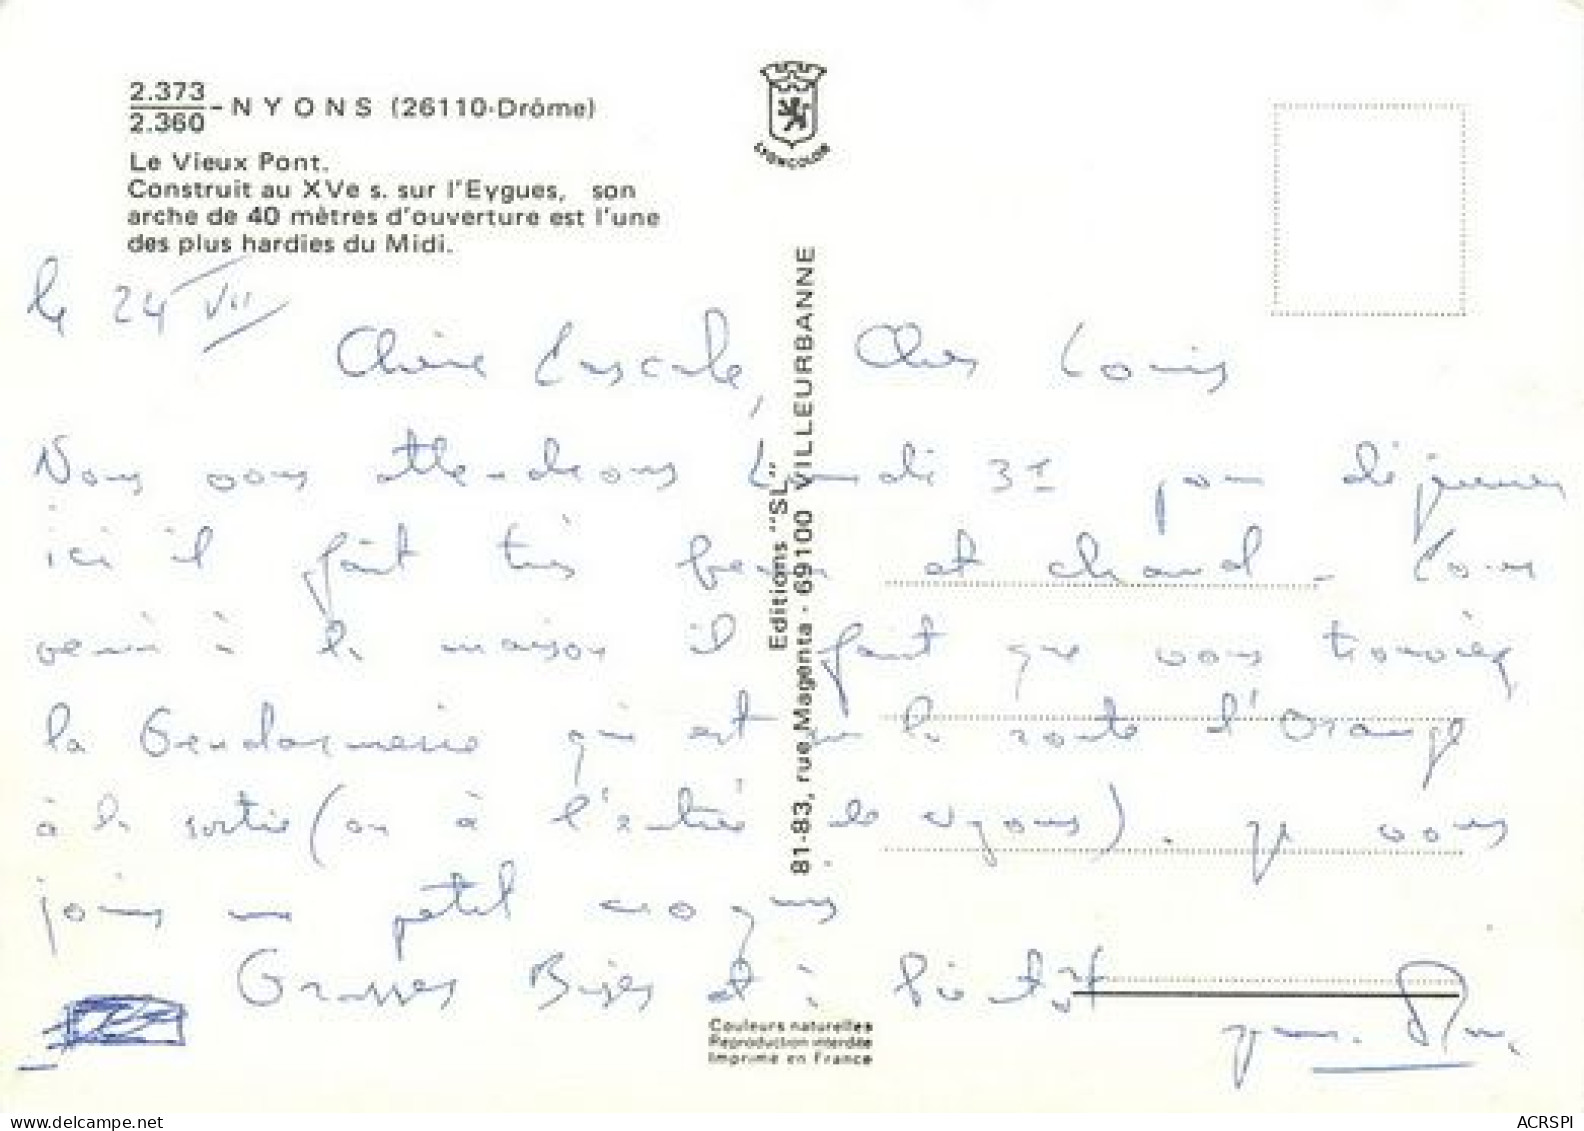 2.373
2.360 - NYONS (26110-Drôme)
Le Vieux Pont.
Construit au XVe s. sur l'Eygues, son
arche de 40 mètres d'ouverture est l'une
des plus hardies du Midi.
LYONCOLOR
Editions "SL"
81-83, rue Magenta - 69100 VILLEURBANNE
le 24/VII/
Chère Pascale, Cher Louis
Nous vous attendrons Lundi 31 pour déjeuner
ici il fait très beau et chaud - Pour
venir à la maison il faut que vous trouviez
la Gendarmerie qui est sur la route d'Orange
à la sortie (ou à l'entrée de Nyons). Je vous
joins un petit croquis
Grosses Bises et à bientôt
Couleurs naturelles
Reproduction interdite
Imprimé en France
ACRSPI